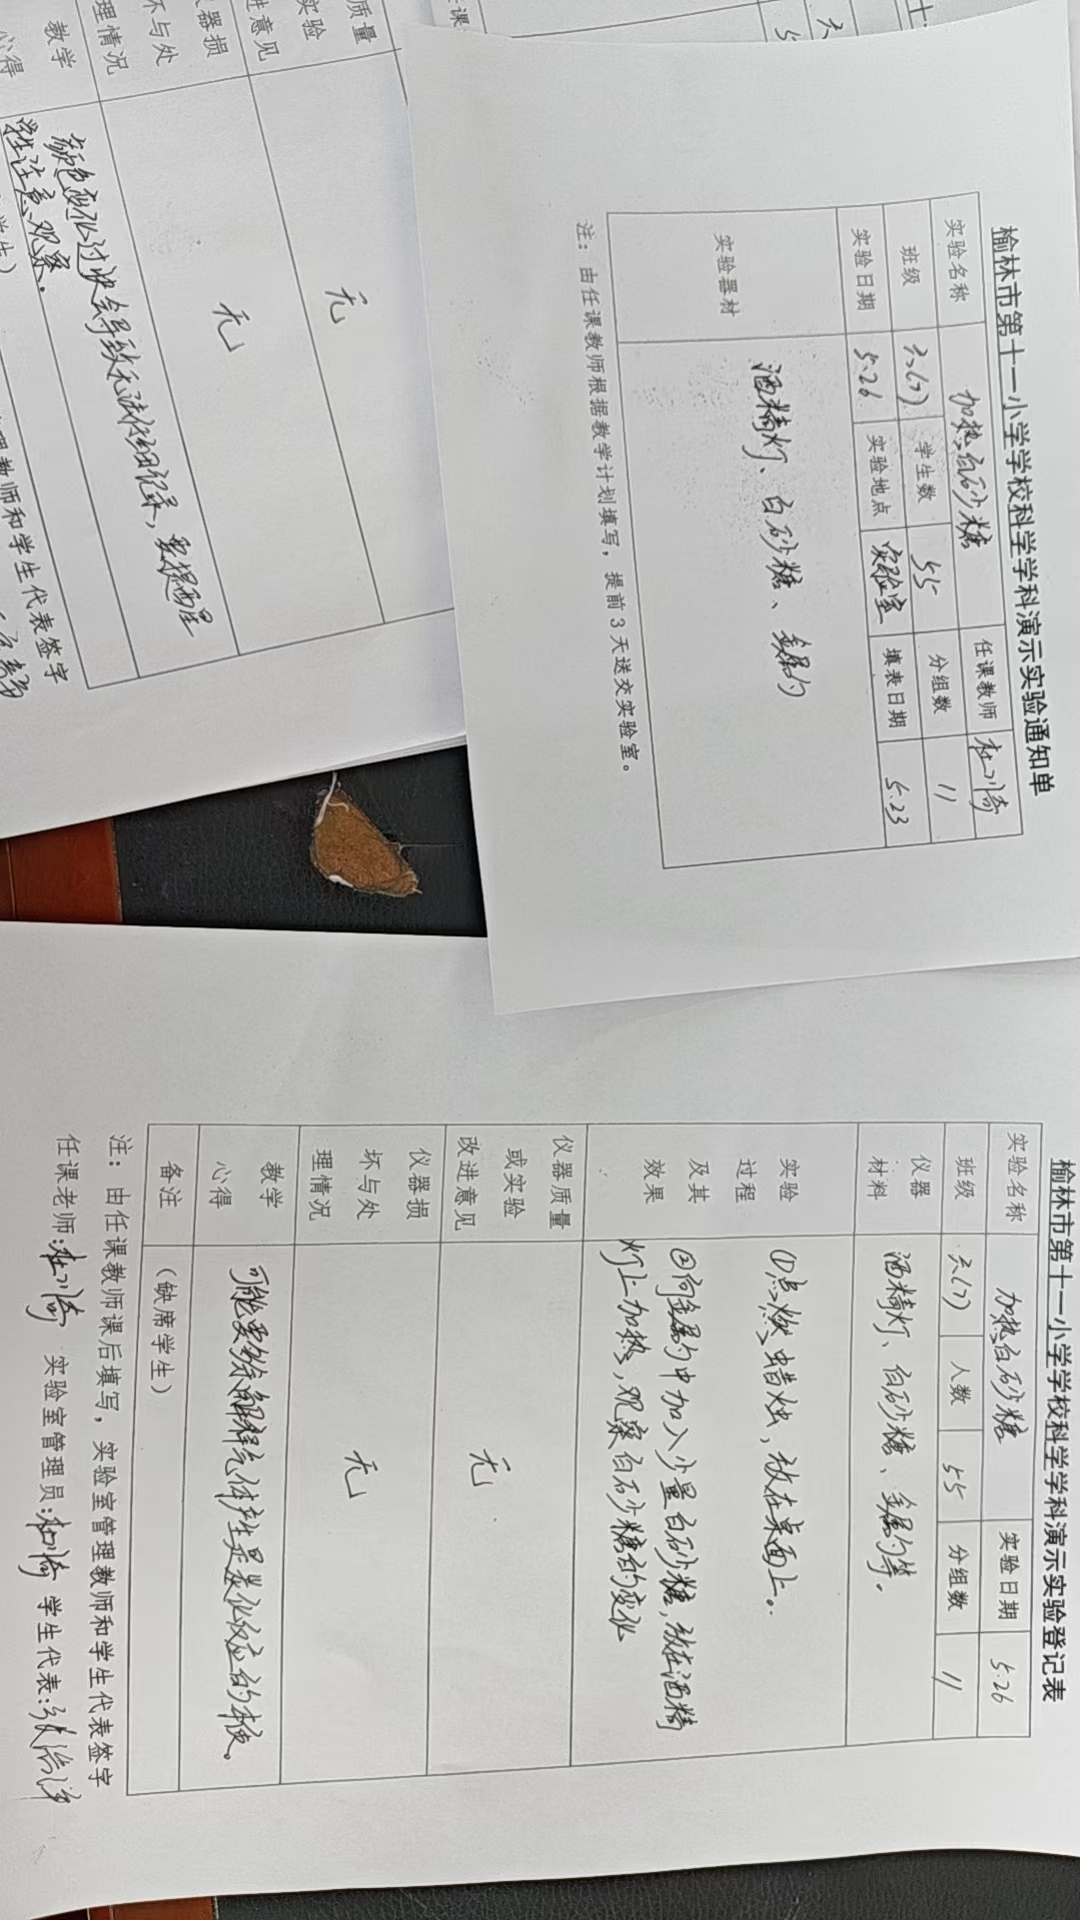 榆林市第十一小学学校科学学科演示实验通知单
实验名称 加热白砂糖 任课教师
班级 六(7) 学生数 55 分组数 11
实验日期 5.26 实验地点 实验室 填表日期 5.23
实验器材 酒精灯、白砂糖、金属勺
注：由任课教师根据教学计划填写，提前3天送交实验室。
榆林市第十一小学学校科学学科演示实验登记表
实验名称 加热白砂糖 实验日期 5.26
班级 六(7) 人数 55 分组数 11
仪器
材料
酒精灯、白砂糖、金属勺等。
实验
过程
及其
效果
①点燃蜡烛，放在桌面上。
②向金属勺中加入少量白砂糖，放在酒精
灯上加热，观察白砂糖的变化
仪器质量
或实验
改进意见
无
仪器损
坏与处
理情况
无
教学
心得
可能要多解释气体产生是氧化反应的本质。
备注 （缺席学生）
注：由任课教师课后填写，实验室管理教师和学生代表签字
任课老师: 实验室管理员: 学生代表:
质量
实验
进意见
无
器损
坏与处
理情况
无
教学
心得
颜色变化过快会导致无法仔细记录，要提醒
学生注意观察。
学生）
理教师和学生代表签字